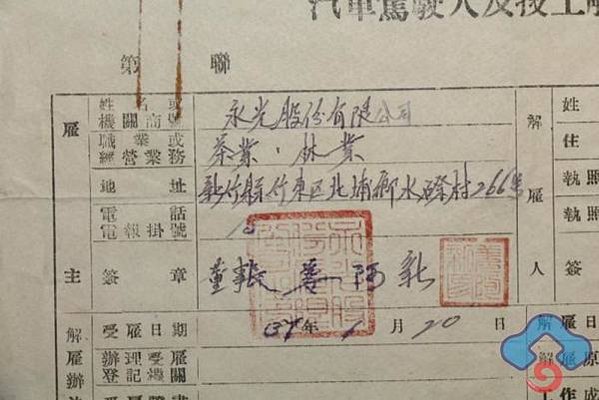 汽車駕駛人及技工
第 聯
雇 主
姓名或機關商號 永光股份有限公司
職業或經營業務 茶業、林業
地址 新竹縣竹東区北埔鄉水磜村266号
電話 電報掛號 15
簽章 董事長 姜阿新
解雇人
姓
住
執照
執照
簽
解雇
受雇日期 37年1月20日
辦理受雇登記機關
解雇日
解雇原
工作或